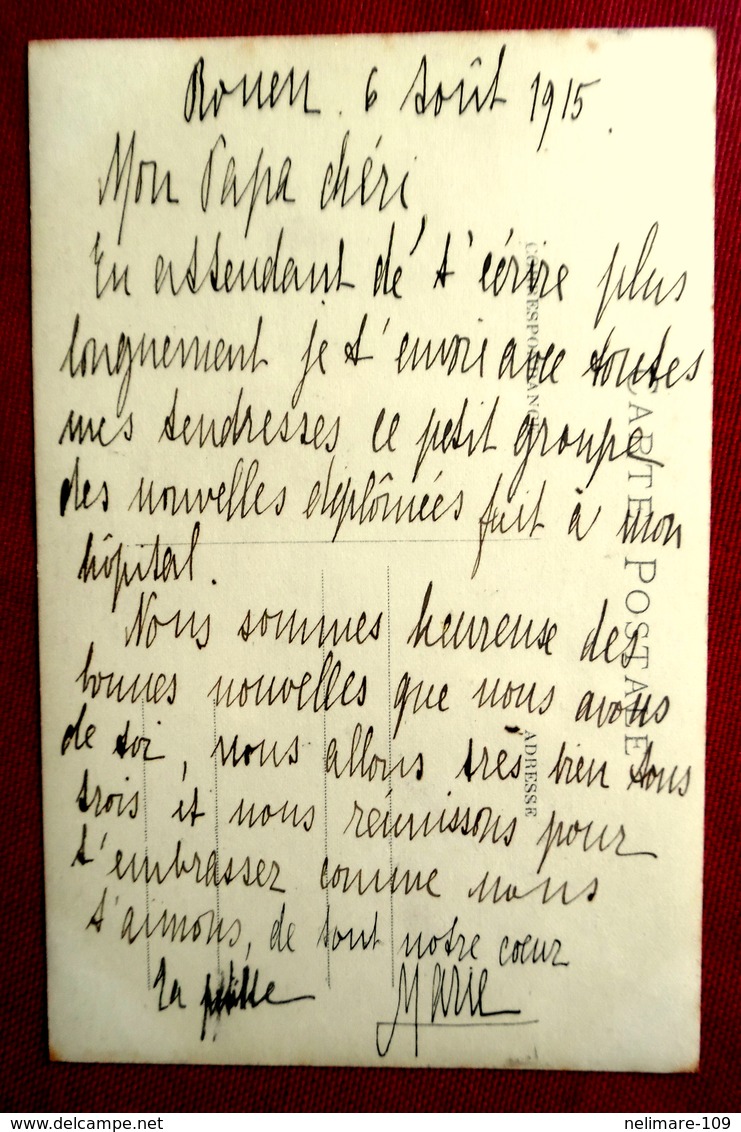 Rouen. 6 Août 1915.
Mon Papa chéri,
En attendant de t'écrire plus
longuement je t'envoie avec toutes
mes tendresses ce petit groupe
des nouvelles diplômées fait à mon
hôpital.
Nous sommes heureuse des
bonnes nouvelles que nous avons
de toi, nous allons très bien tous
trois et nous réunissons pour
t'embrasser comme nous
t'aimons, de tout notre coeur
Ta petite Marie
CARTE POSTALE
CORRESPONDANCE
ADRESSE
nelimare-109